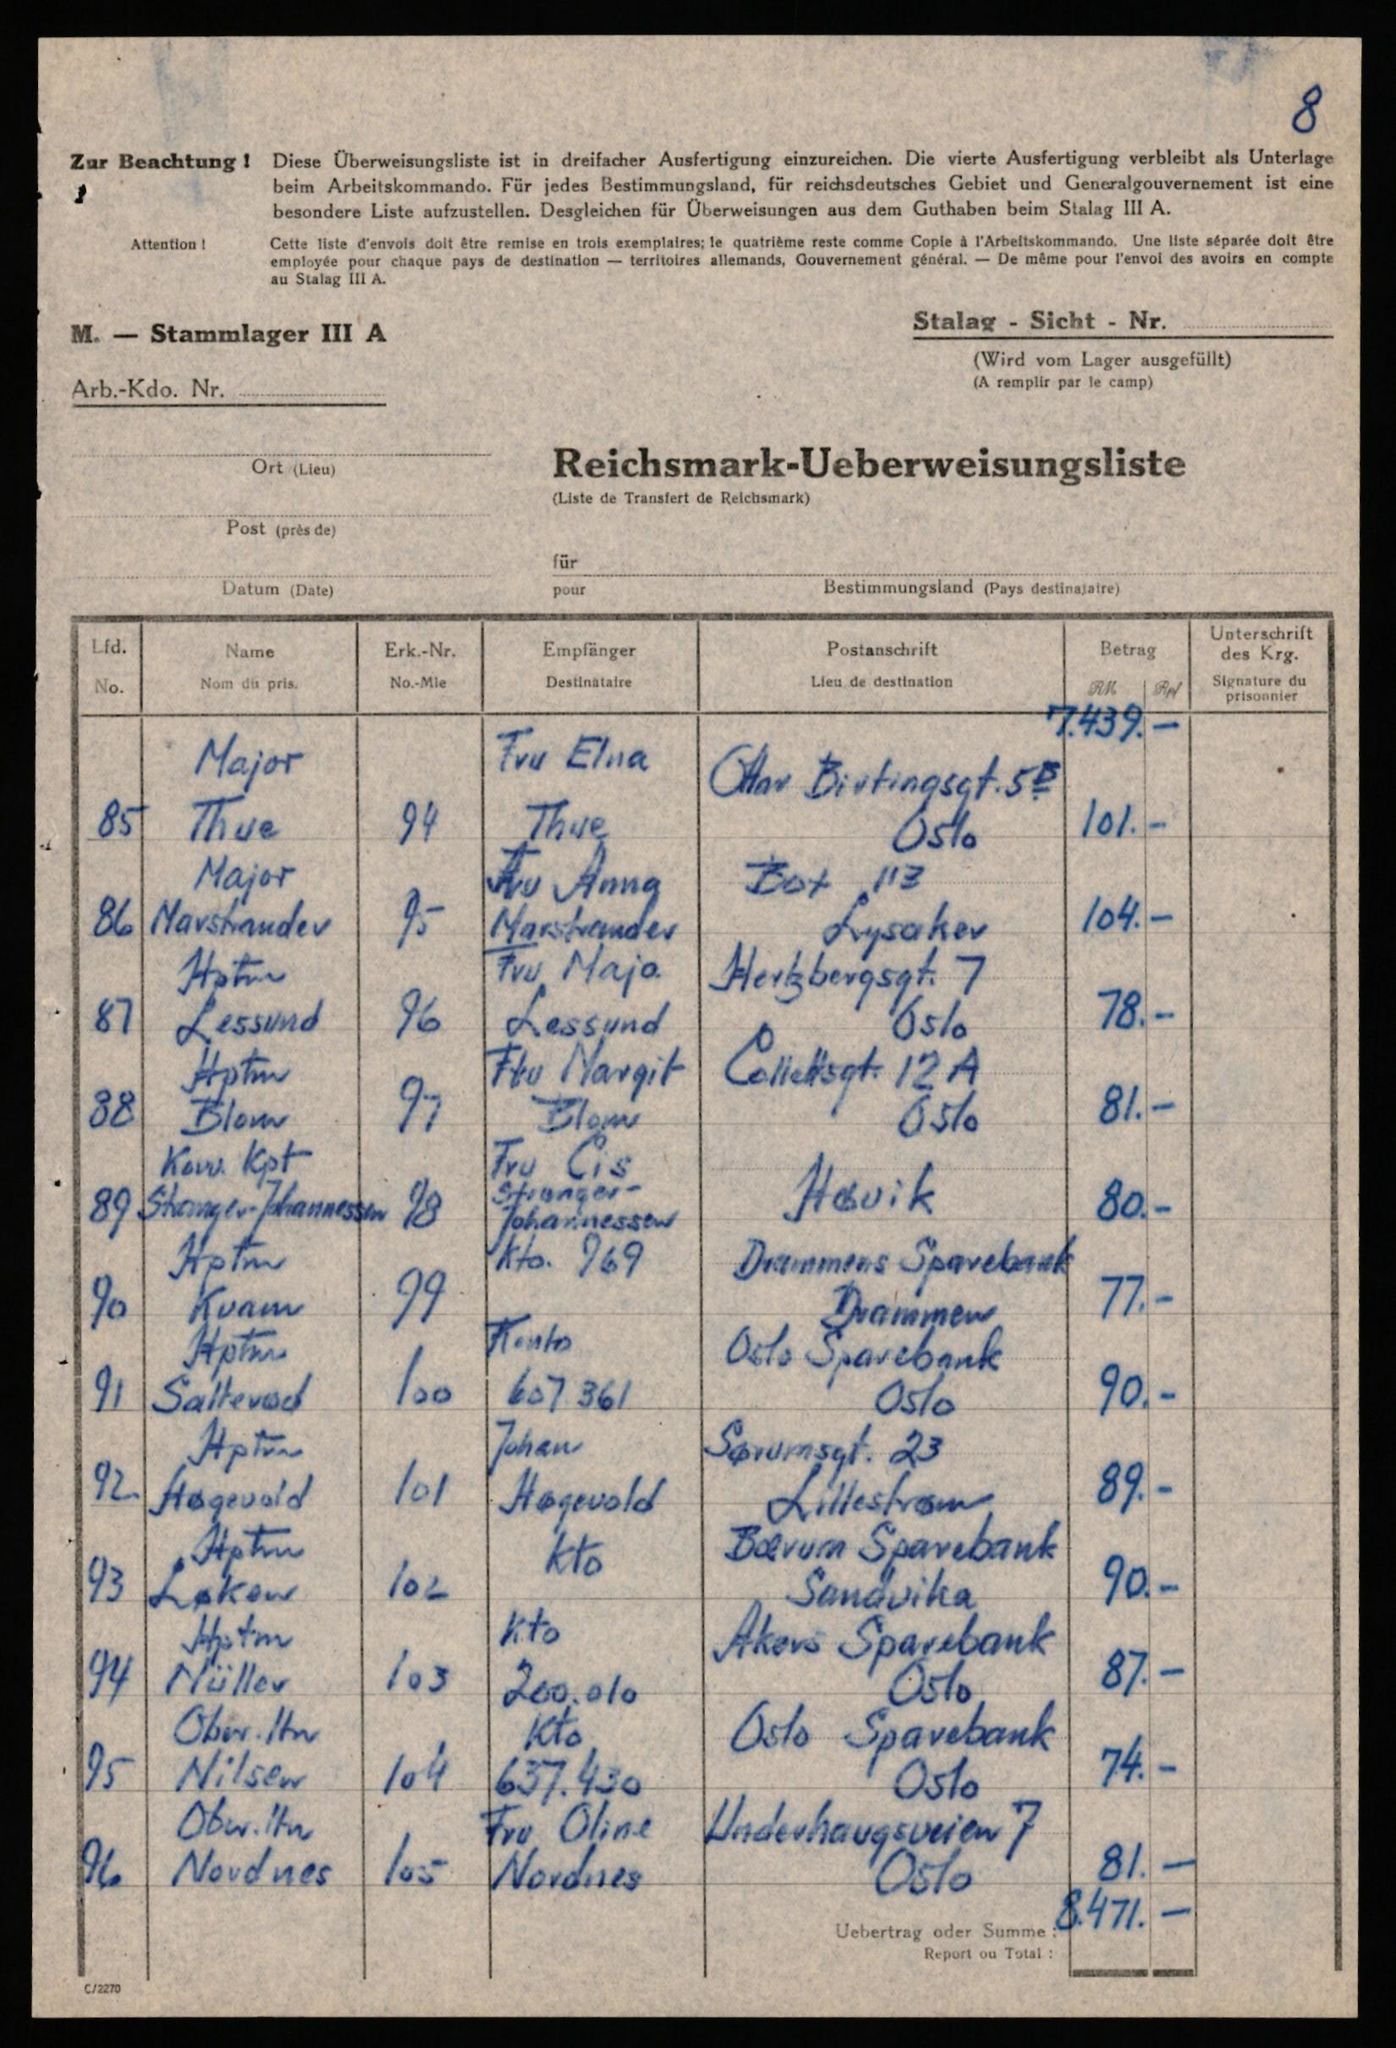 8
Zur Beachtung ! Diese Überweisungsliste ist in dreifacher Ausfertigung einzureichen. Die vierte Ausfertigung verbleibt als Unterlage
beim Arbeitskommando. Für jedes Bestimmungsland, für reichsdeutsches Gebiet und Generalgouvernement ist eine
besondere Liste aufzustellen. Desgleichen für Überweisungen aus dem Guthaben beim Stalag III A.
Attention ! Cette liste d'envois doit être remise en trois exemplaires; le quatrième reste comme Copie à l'Arbeitskommando. Une liste séparée doit être
employée pour chaque pays de destination — territoires allemands, Gouvernement général. — De même pour l'envoi des avoirs en compte
au Stalag III A.
M. — Stammlager III A
Stalag - Sicht - Nr.
(Wird vom Lager ausgefüllt)
(A remplir par le camp)
Arb.-Kdo. Nr.
Ort (Lieu)
Reichsmark-Ueberweisungsliste
(Liste de Transfert de Reichsmark)
Post (près de)
für
Datum (Date) pour Bestimmungsland (Pays destinataire)
Lfd. Name Erk.-Nr. Empfänger Postanschrift Betrag Unterschrift des Krg.
No. Nom du pris. No.-Mle Destinataire Lieu de destination RM Rpf Signature du prisonnier
7.439.—
Major Fru Elna Ottar Birtingsgt. 5B
85 Thue 94 Thue Oslo 101.-
Major Fru Anna Box 113
86 Marstrander 95 Marstrander Lysaker 104.-
Hptm Fru Maja Hertzbergsgt. 7
87 Lessund 96 Lessund Oslo 78.-
Hptm Fru Margit Collettsgt. 12 A
88 Blom 97 Blom Oslo 81.-
Korv. Kpt Fru Cis
89 Stranger-Johannessen 98 Stranger-Johannessen Høvik 80.-
Hptm Kto. 969 Drammens Sparebank
90 Kvam 99 Drammen 77.-
Hptm Konto Oslo Sparebank
91 Hptm 100 607 361 Oslo 90.-
Hptm Johan Sørumsgt. 23
92. Høgevold 101 Høgevold Lillestrøm 89.-
Hptm Kto Bærum Sparebank
93 Løken 102 Sandvika 90.-
Hptm Kto Akers Sparebank
94 Müller 103 200.010 Oslo 87.—
Ober.ltn Kto Oslo Sparebank
95 Nilsen 104 637.430 Oslo 74.-
Ober.ltn Fru Oline Underhaugsveien 7
96 Nordnes 105 Nordnes Oslo 81.—
Uebertrag oder Summe : 8.471.—
Report ou Total :
C/2270